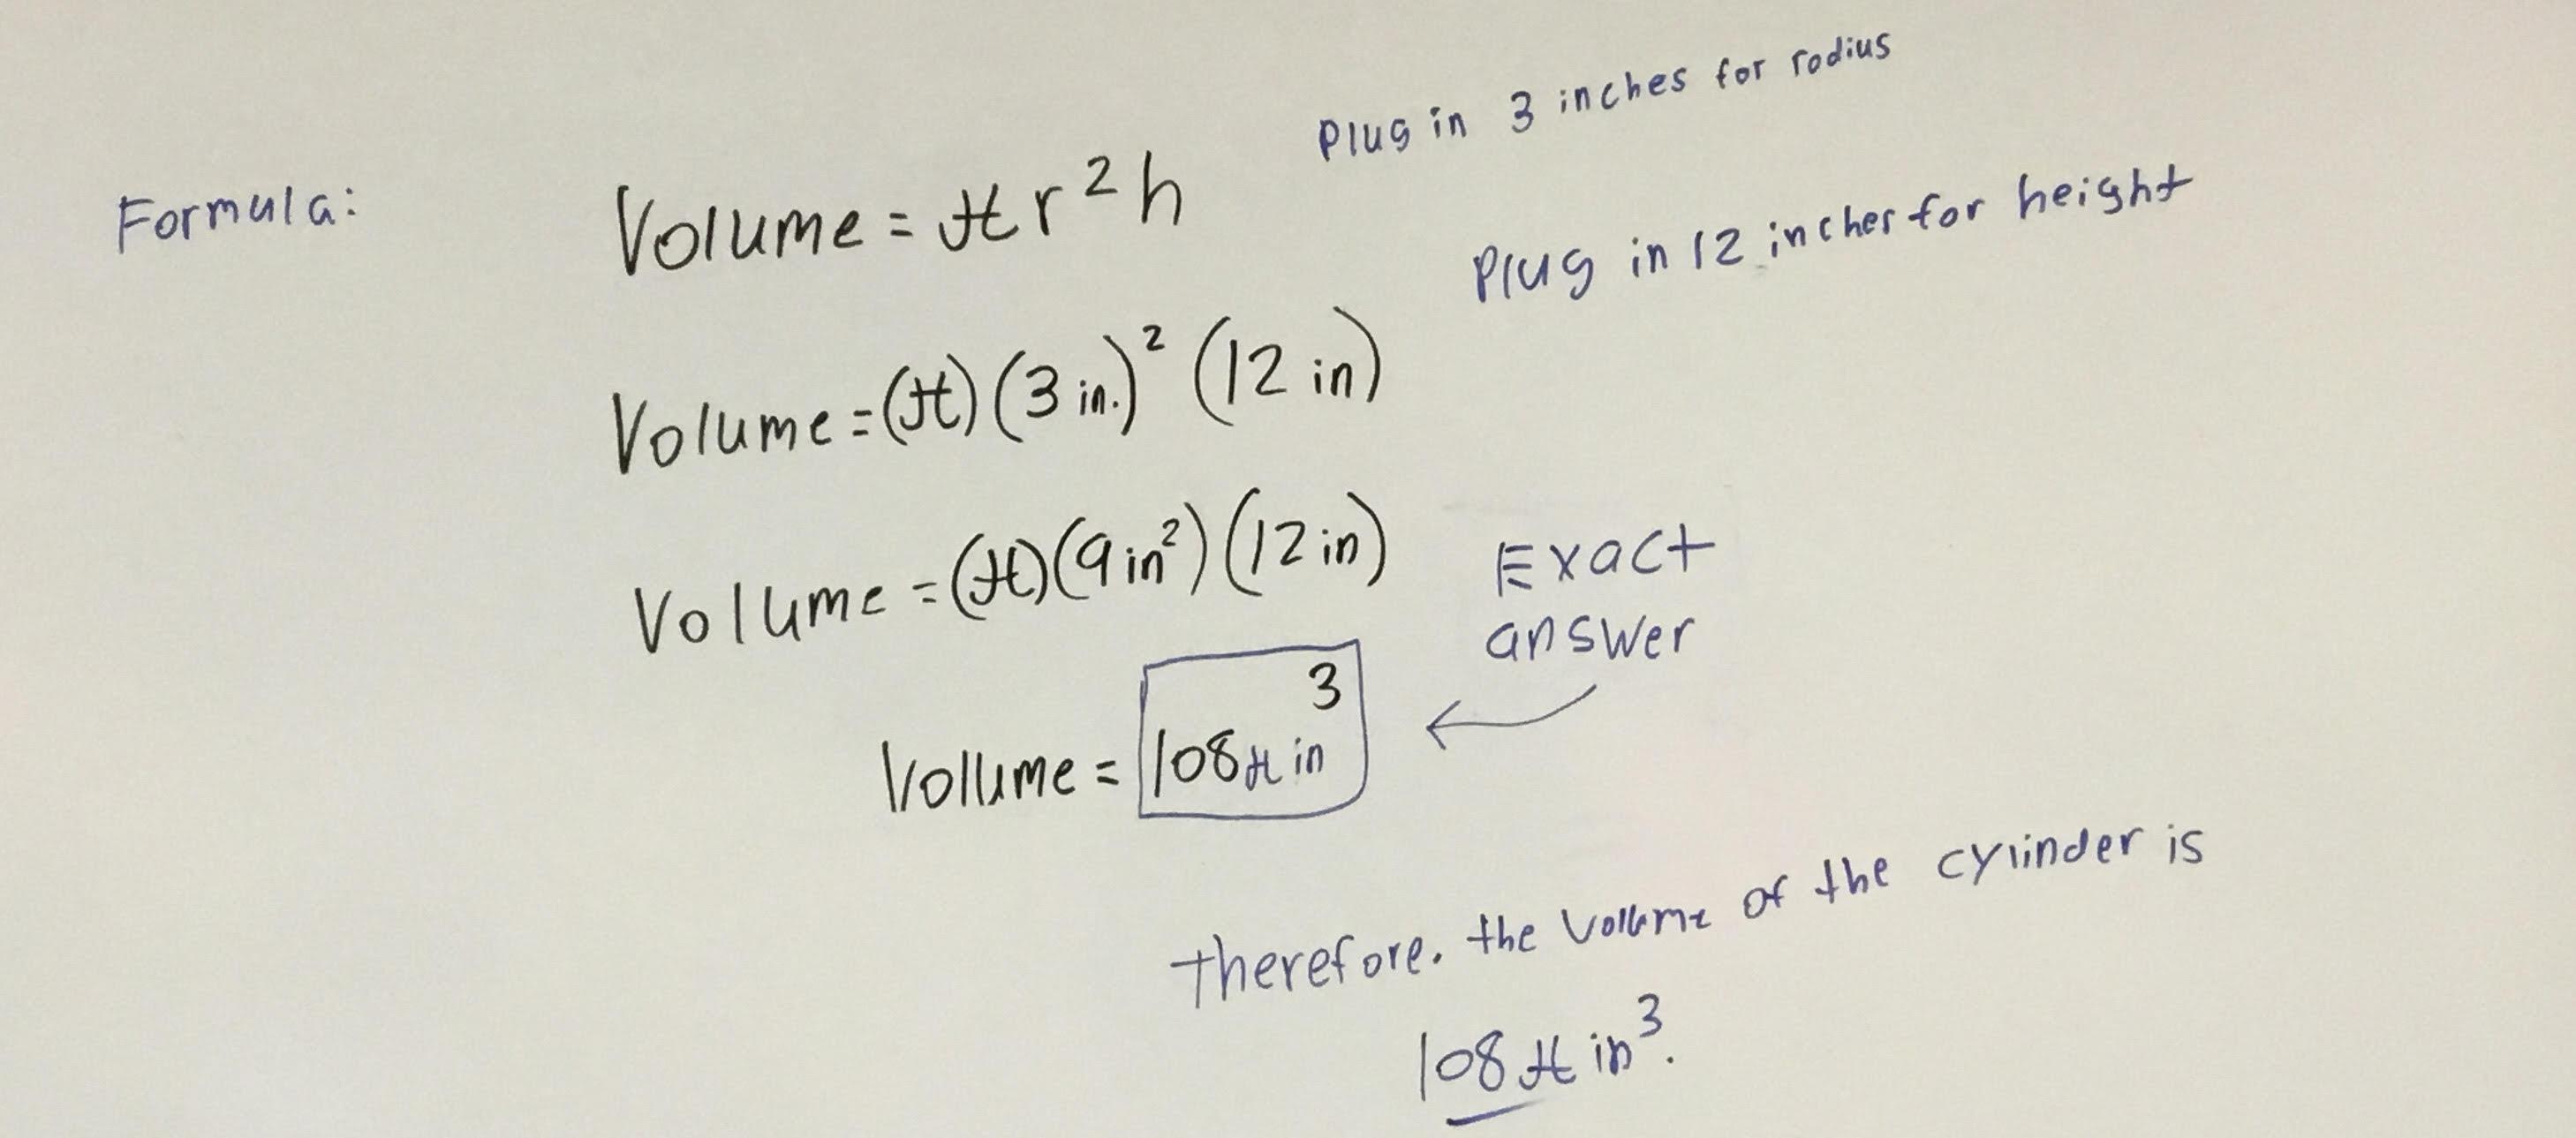 Plug in 3 inches for rodius
Formula: Volume = π r² h
Plug in 12 inches for height
Volume = (π) (3 in.)² (12 in)
Volume = (π) (9 in²) (12 in)
Exact
answer
Volume = 108 π in³
Therefore. the volume of the cylinder is
108 π in³.